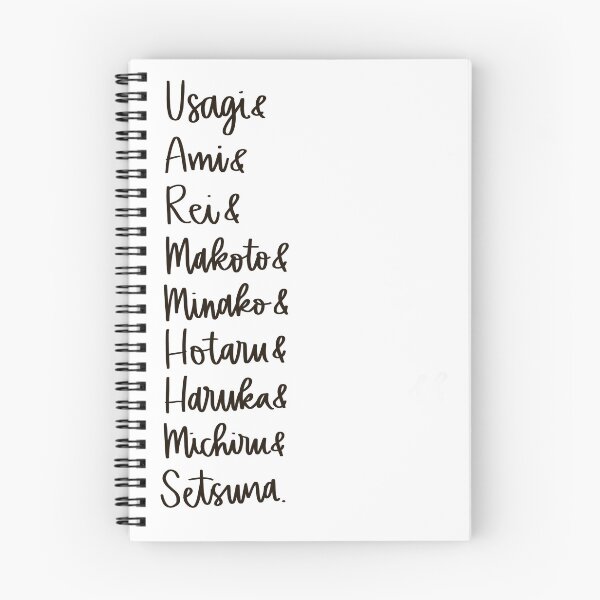 Usagi&
Ami&
Rei&
Makoto&
Minako&
Hotaru&
Haruka&
Michiru&
Setsuna.